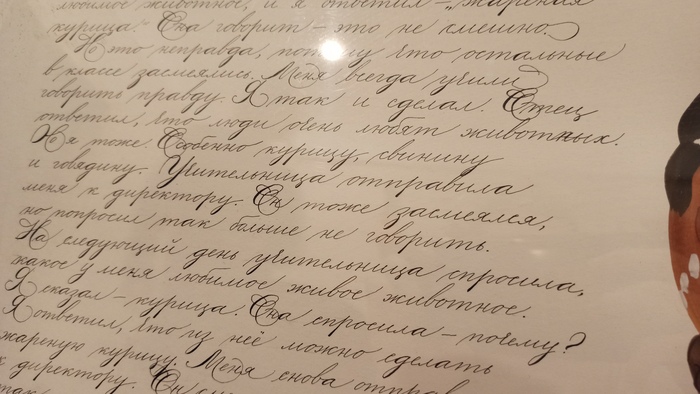 любимое животное, и я ответил – „жареная
курица." Она говорит – это не смешно.
Но это неправда, потому что остальные
в классе засмеялись. Меня всегда учили
говорить правду. Я так и сделал. Отец
ответил, что люди очень любят животных.
Но я тоже. Особенно курицу, свинину
и говядину. Учительница отправила
меня к директору. Он тоже засмеялся,
но попросил так больше не говорить.
На следующий день учительница спросила,
какое у меня любимое живое животное.
Я сказал – курица. Она спросила – почему?
Я ответил, что из неё можно сделать
жареную курицу. Меня снова отправ
к директору. Он
так